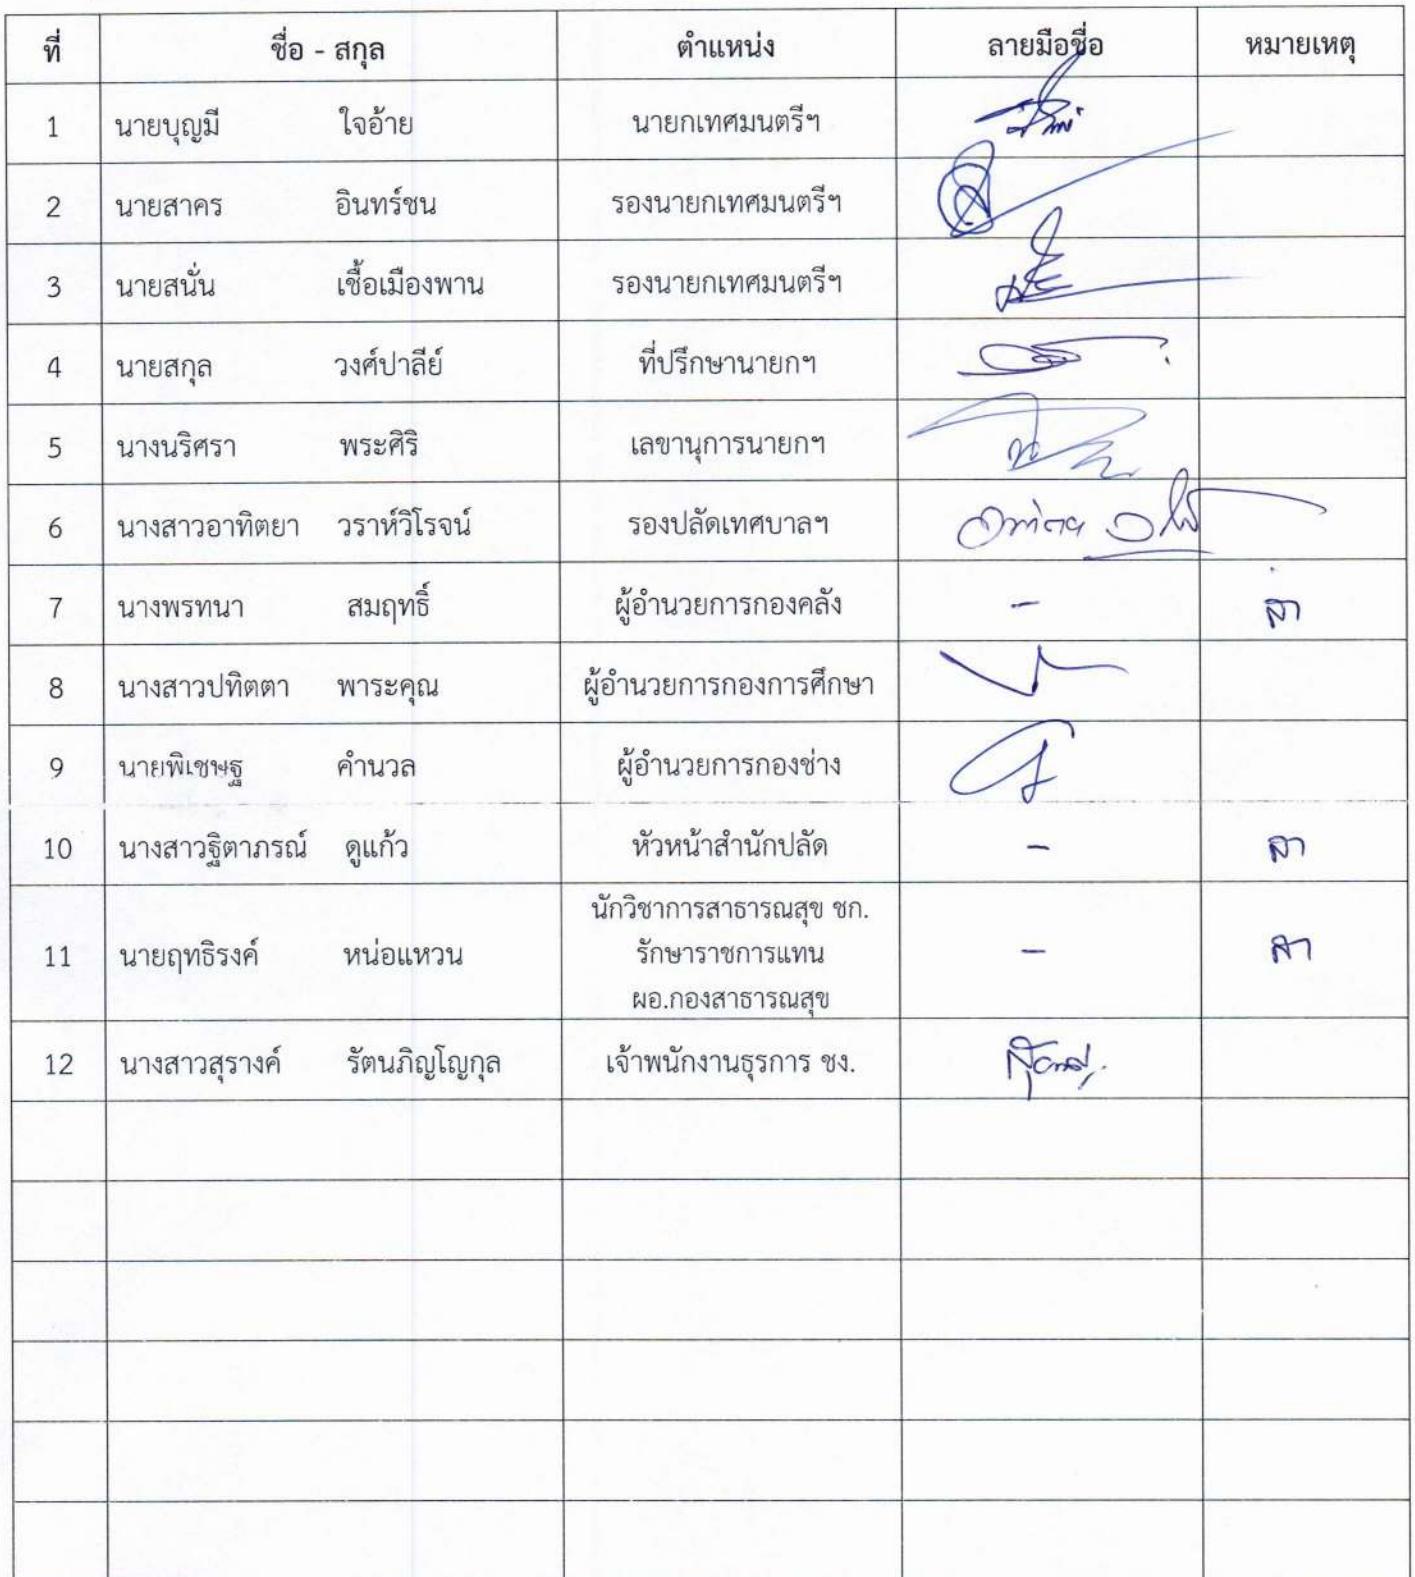 ที่ ชื่อ - สกุล ตำแหน่ง ลายมือชื่อ หมายเหตุ
1 นายบุญมี ใจอ้าย นายกเทศมนตรีฯ
2 นายสาคร อินทร์ชน รองนายกเทศมนตรีฯ
3 นายสนั่น เชื้อเมืองพาน รองนายกเทศมนตรีฯ
4 นายสกุล วงศ์ปาลีย์ ที่ปรึกษานายกฯ
5 นางนริศรา พระศิริ เลขานุการนายกฯ
6 นางสาวอาทิตยา วราห์วิโรจน์ รองปลัดเทศบาลฯ
7 นางพรทนา สมฤทธิ์ ผู้อำนวยการกองคลัง - ลา
8 นางสาวปทิตตา พาระคุณ ผู้อำนวยการกองการศึกษา
9 นายพิเชษฐ คำนวล ผู้อำนวยการกองช่าง
10 นางสาวฐิตาภรณ์ ดูแก้ว หัวหน้าสำนักปลัด - ลา
นักวิชาการสาธารณสุข ชก.
11 นายฤทธิรงค์ หน่อแหวน รักษาราชการแทน - ลา
ผอ.กองสาธารณสุข
12 นางสาวสุรางค์ รัตนภิญโญกุล เจ้าพนักงานธุรการ ชง.